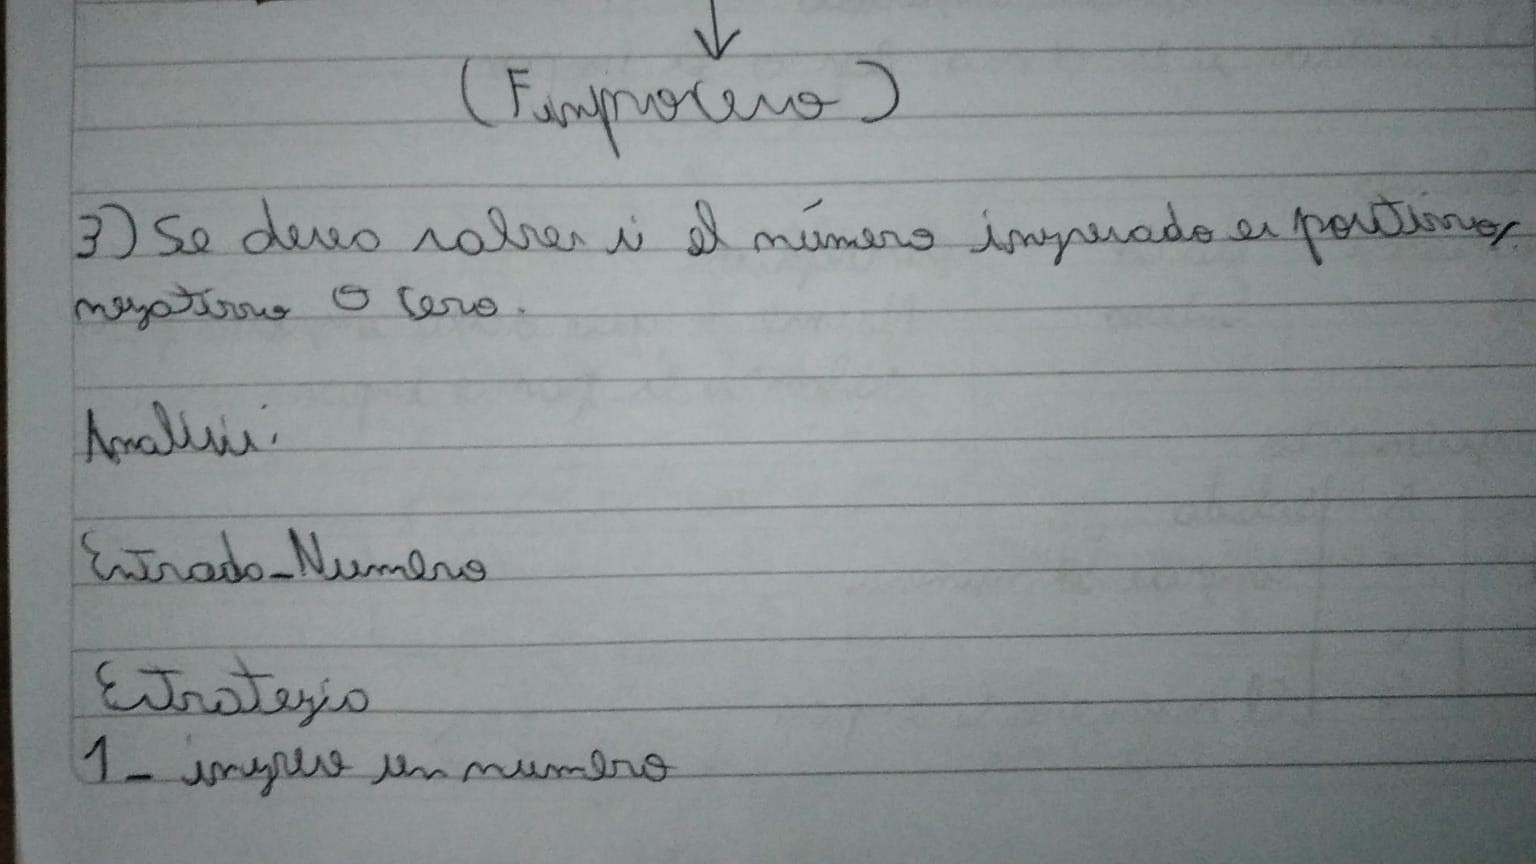 (Finproceso)
3) Se deseo saber si el número ingresado es positivo,
negativo o cero.
Analisis:
Entrada-Numero
Estrategia
1- ingreso un numero